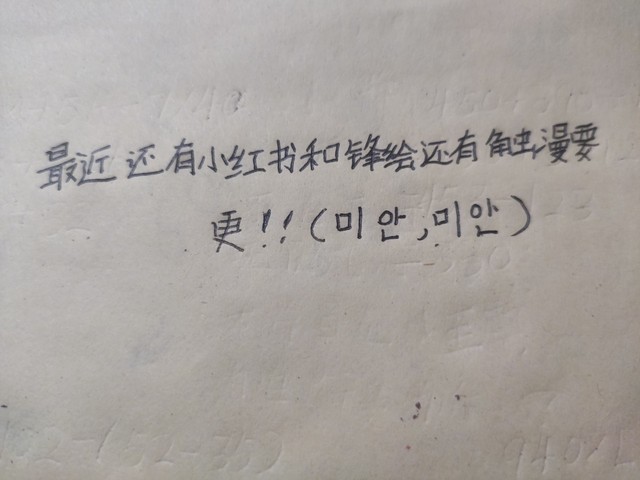 最近还有小红书和锋绘还有触漫要
更!!(미안,미안)